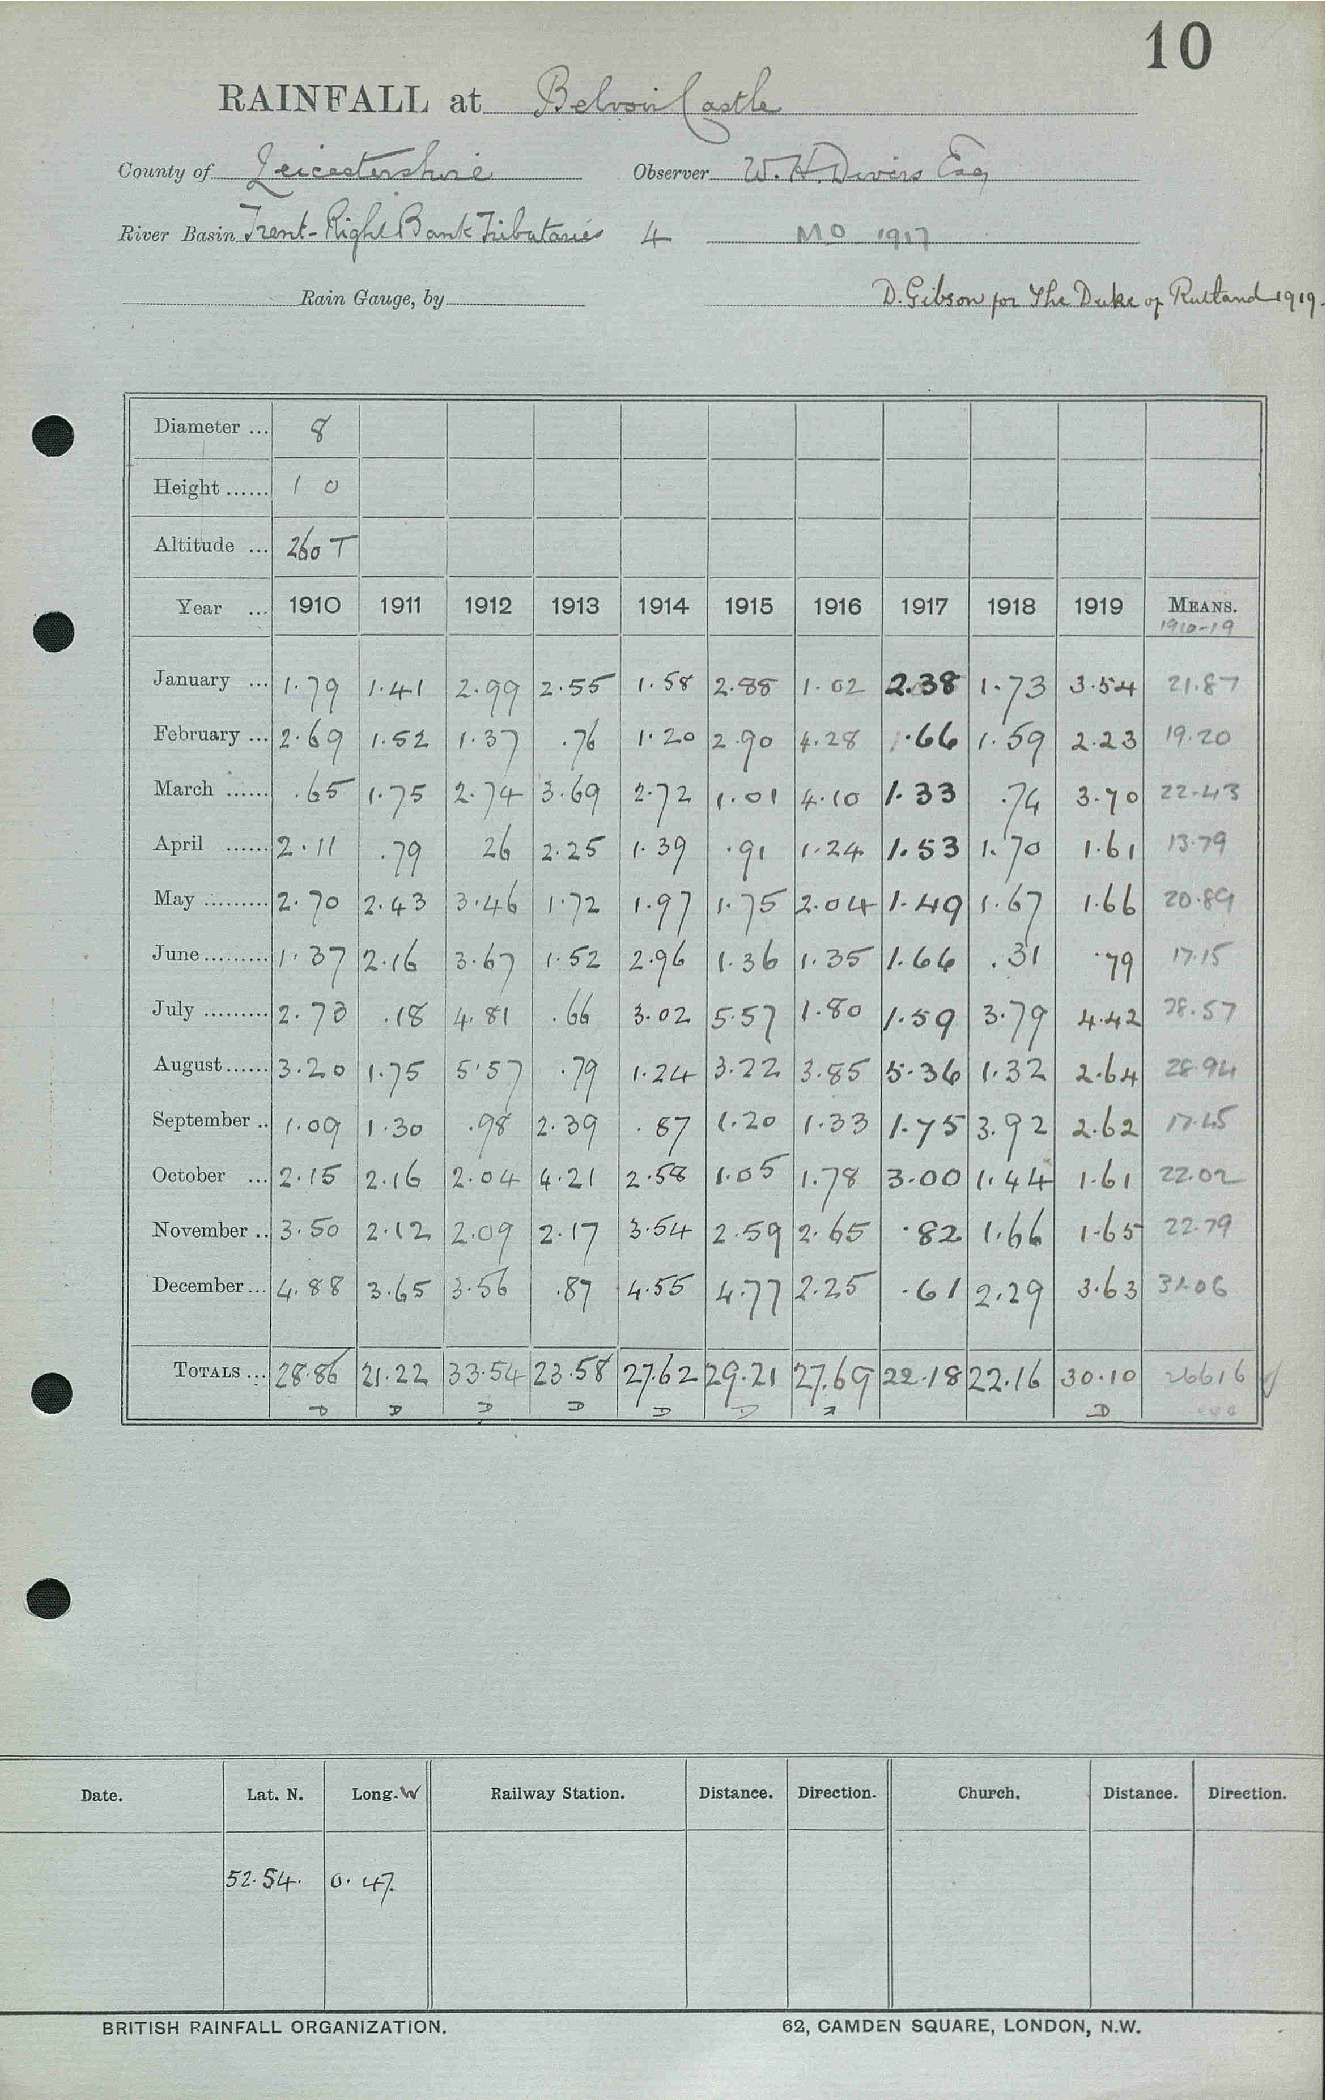 10
RAINFALL at Belvoir Castle
County of Leicestershire Observer W. H. Divers Esq
River Basin Trent-Right Bank Tributaries 4 MO 1917
Rain Gauge, by D. Gibson for The Duke of Rutland 1919.
Diameter ... 8
Height ...... 1 0
Altitude ... 260 T
Year ... 1910 1911 1912 1913 1914 1915 1916 1917 1918 1919 MEANS.
1910-19
January ... 1.79 1.41 2.99 2.55 1.58 2.88 1.02 2.38 1.73 3.54 21.87
February ... 2.69 1.52 1.37 .76 1.20 2.90 4.28 1.66 1.59 2.23 19.20
March ...... .65 1.75 2.74 3.69 2.72 1.01 4.10 1.33 .74 3.70 22.43
April ...... 2.11 .79 26 2.25 1.39 .91 1.24 1.53 1.70 1.61 13.79
May ......... 2.70 2.43 3.46 1.72 1.97 1.75 2.04 1.49 1.67 1.66 20.89
June ......... 1.37 2.16 3.67 1.52 2.96 1.36 1.35 1.66 .31 .79 17.15
July ......... 2.73 .18 4.81 .66 3.02 5.57 1.80 1.59 3.79 4.42 28.57
August ...... 3.20 1.75 5.57 .79 1.24 3.22 3.85 5.36 1.32 2.64 28.94
September .. 1.09 1.30 .98 2.39 .87 1.20 1.33 1.75 3.92 2.62 17.45
October ... 2.15 2.16 2.04 4.21 2.58 1.05 1.78 3.00 1.44 1.61 22.02
November .. 3.50 2.12 2.09 2.17 3.54 2.59 2.65 .82 1.66 1.65 22.79
December ... 4.88 3.65 3.56 .87 4.55 4.77 2.25 .61 2.29 3.63 31.06
TOTALS ... 28.86 21.22 33.54 23.58 27.62 29.21 27.69 22.18 22.16 30.10 266.16
D D D D D D D D
Date. Lat. N. Long. W Railway Station. Distance. Direction. Church. Distance. Direction.
52.54. 0.47.
BRITISH RAINFALL ORGANIZATION. 62, CAMDEN SQUARE, LONDON, N.W.